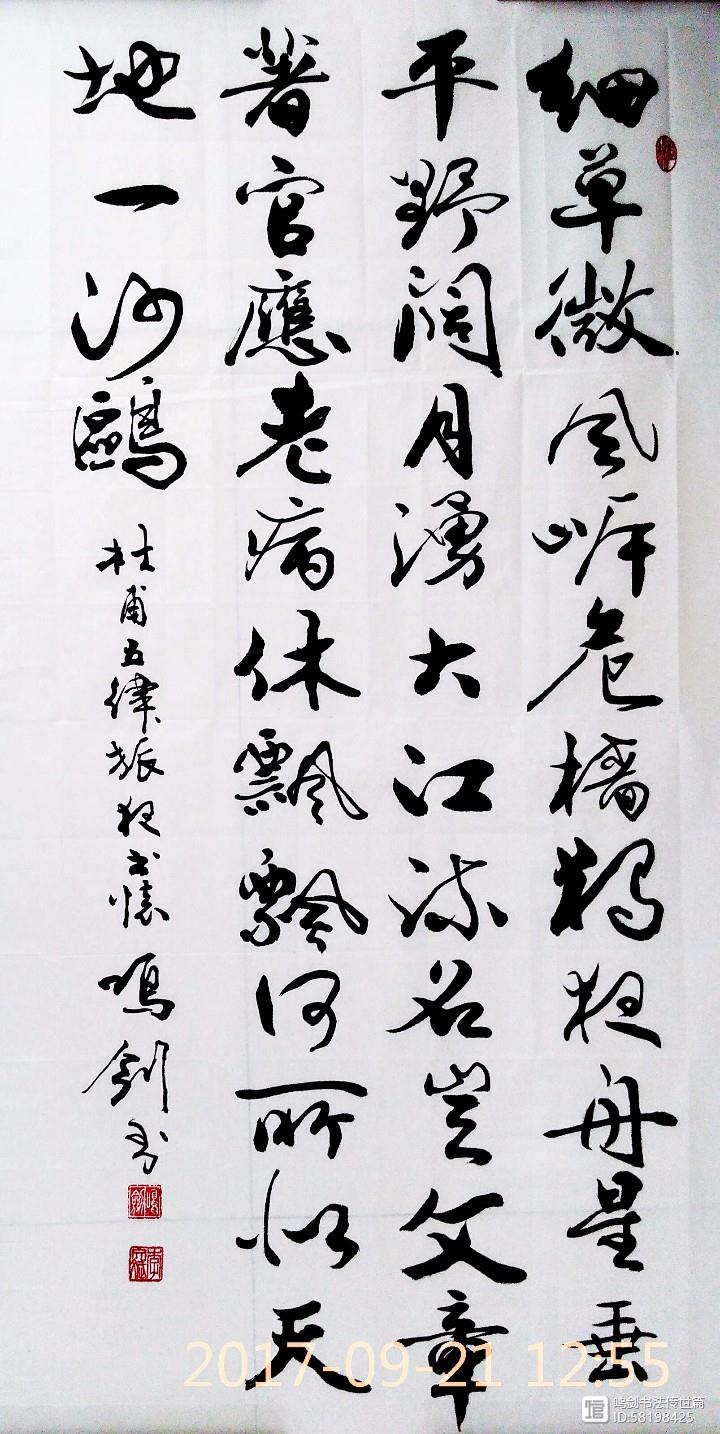 細草微風岸危檣獨夜舟星垂
平野闊月湧大江流名豈文章
著官應老病休飄飄何所似天
地一沙鷗
杜甫五律旅夜書懷 鳴劍書
2017-09-21 12:55
鸣剑书法传世篇
ID:58198425